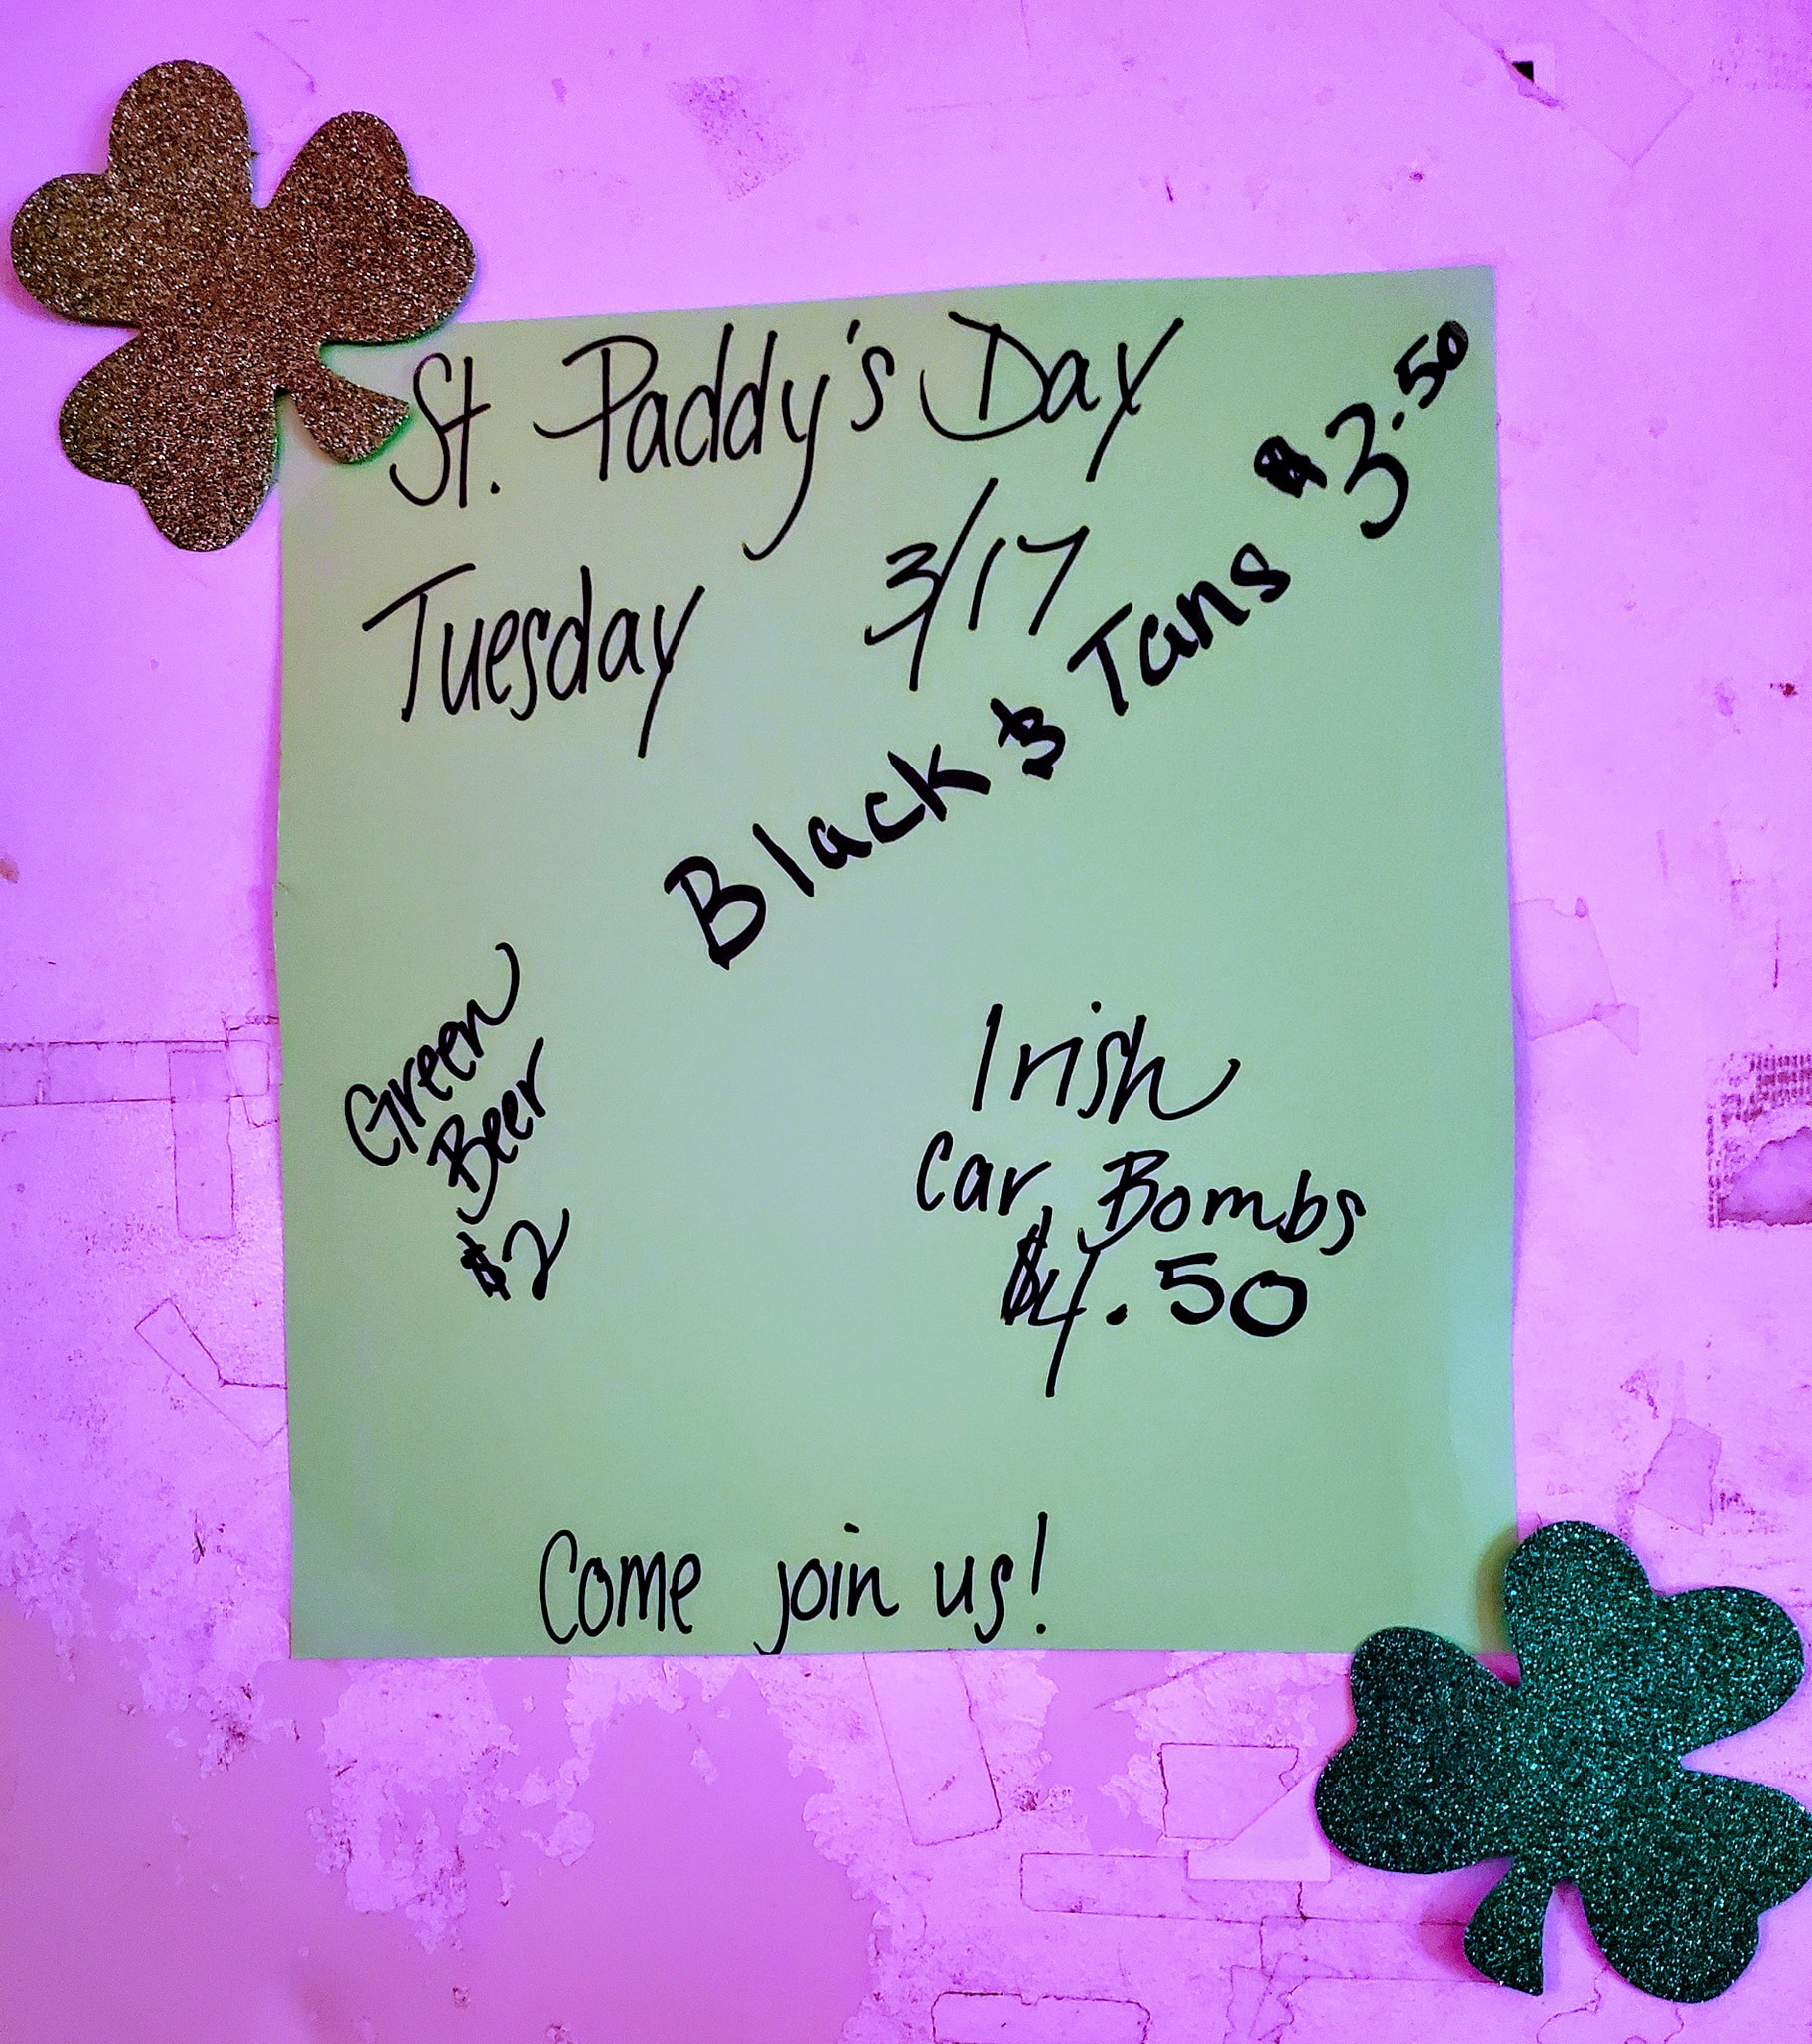 St. Paddy's Day
Tuesday 3/17
Black & Tans $3.50
Green
Beer
$2
Irish
Car Bombs
$4.50
Come join us!